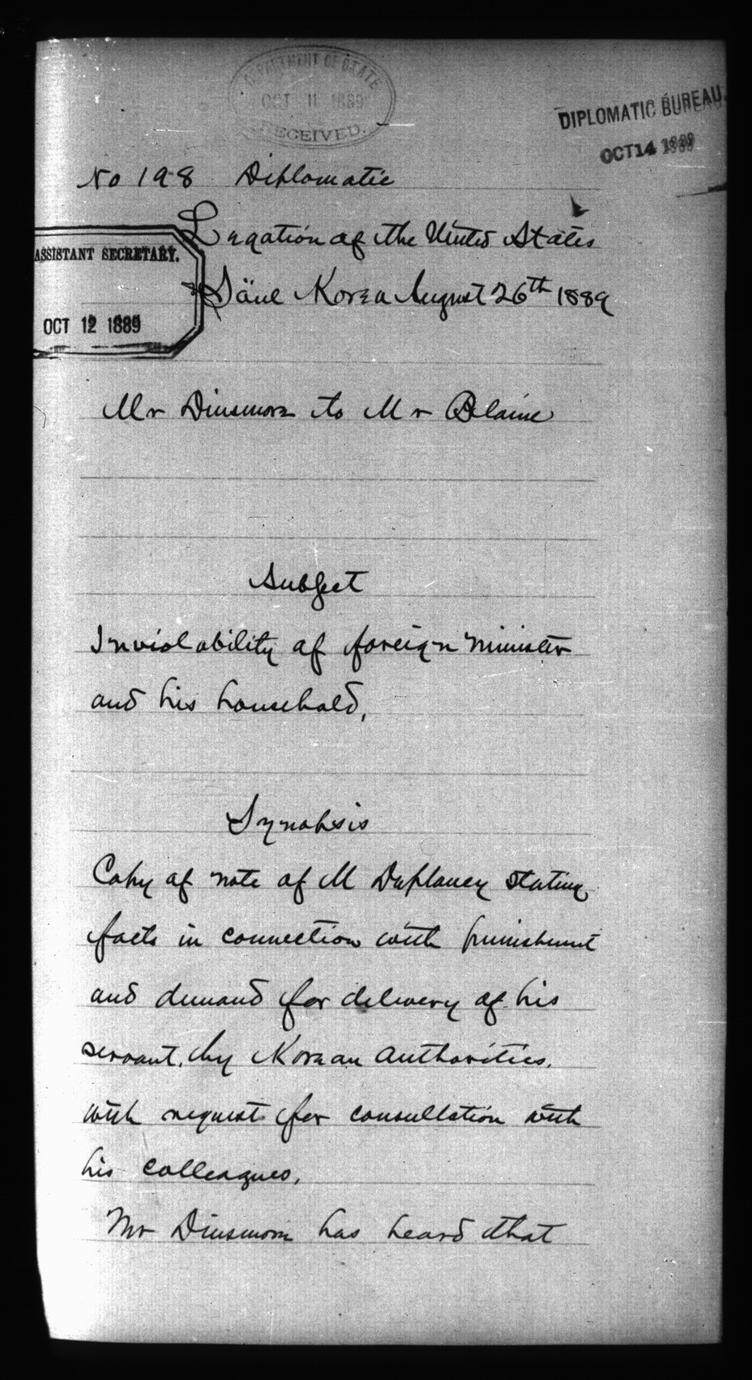 DEPARTMENT OF STATE
OCT 11 1889
RECEIVED.
DIPLOMATIC BUREAU.
OCT 14 1889
No 198 Diplomatic
Legation of the United States
ASSISTANT SECRETARY.
OCT 12 1889
Säul Korea August 26th 1889
Mr Dinsmore to Mr Blaine
Subject
Inviolability of foreign minister
and his household,
Synopsis
Copy of note of M Duplaney stating
facts in connection with punishment
and demand for delivery of his
servant, by Korean authorities,
with request for consultation with
his colleagues,
Mr Dinsmore has heard that